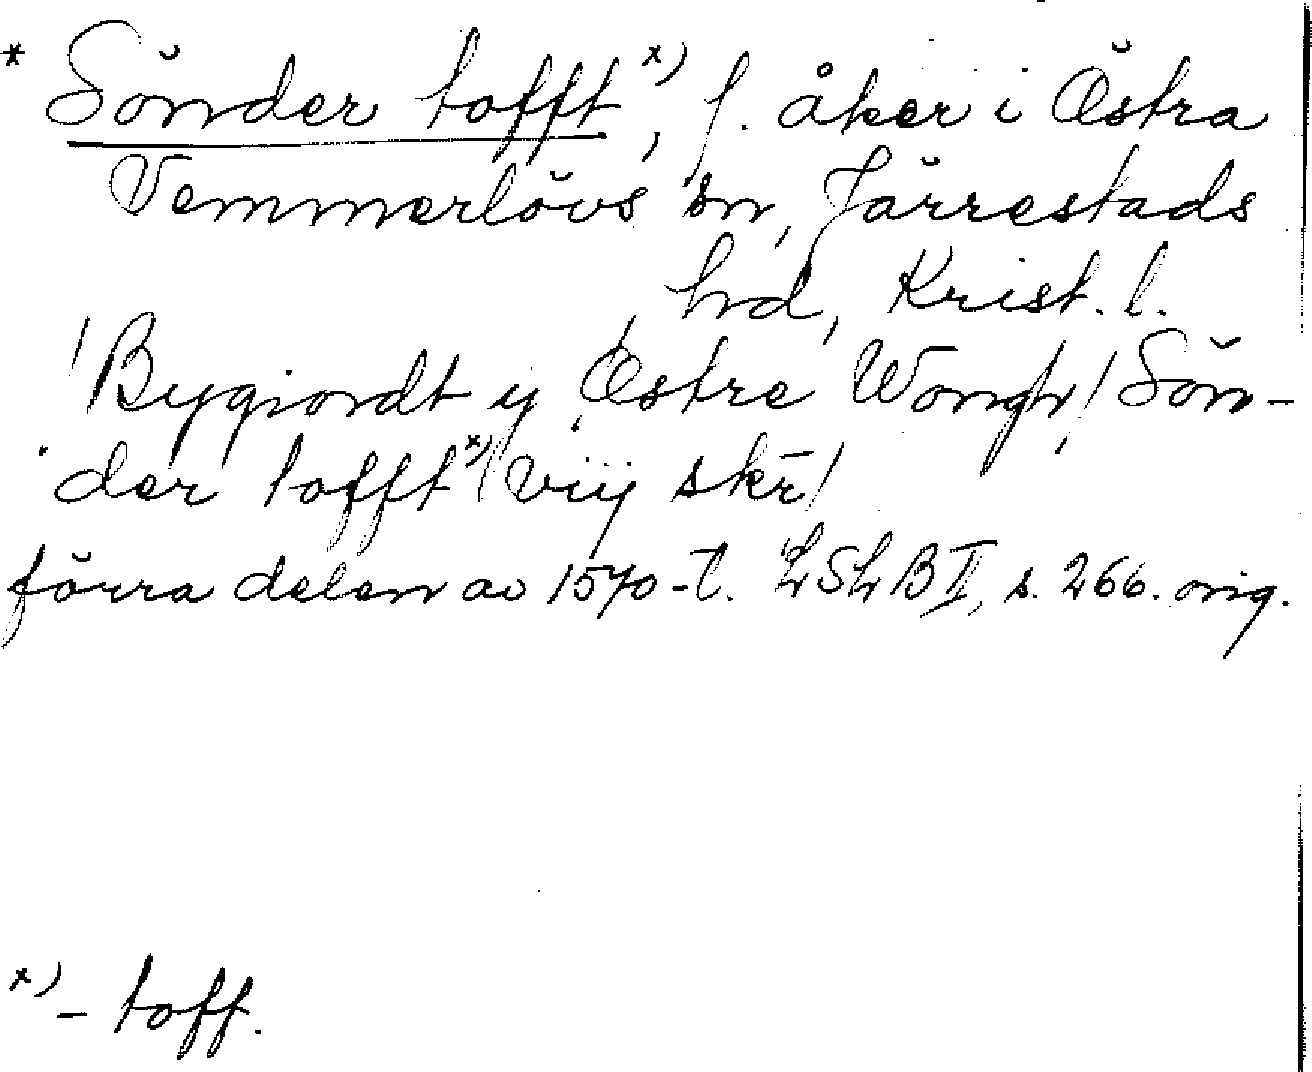 * Sönder tofft x), f. åker i Östra
Vemmerlövs sn, Järrestads
hd, Krist. l.
/Bygiordt y Østre Wongh/ Sön-
der tofft x)/ viij skr̄/
förra delen av 1570-t. LSLB II, s. 266. orig.
x) - toff.